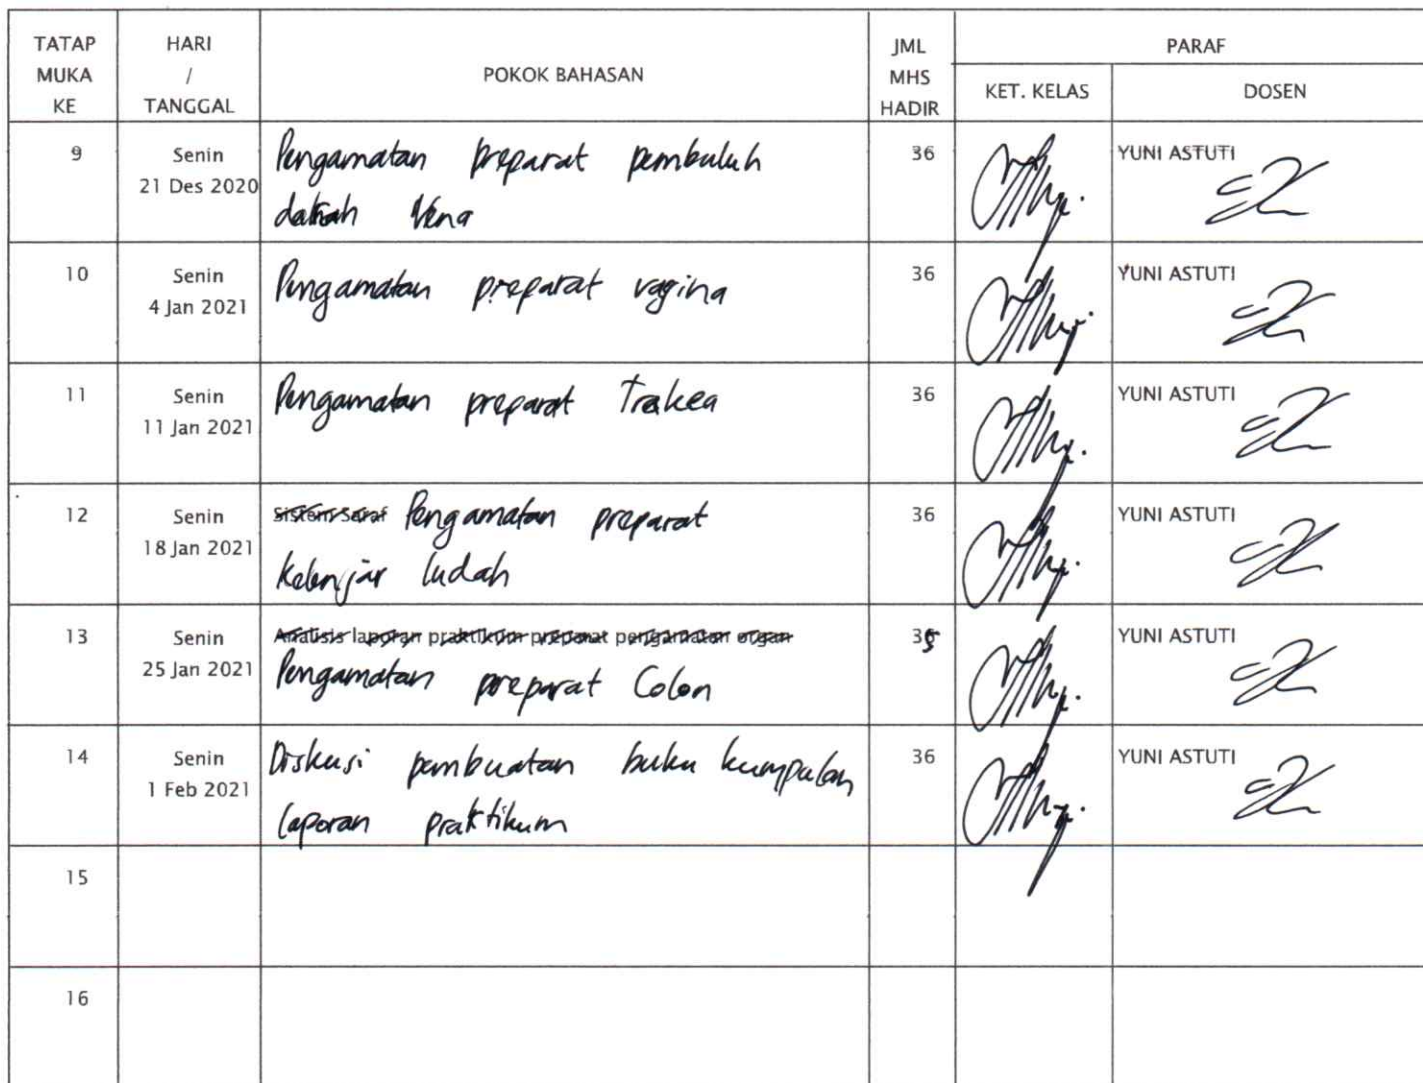 TATAP MUKA KE
HARI / TANGGAL
POKOK BAHASAN
JML MHS HADIR
PARAF
KET. KELAS
DOSEN
9
Senin
21 Des 2020
Pengamatan preparat pembuluh
darah Vena
36
YUNI ASTUTI
10
Senin
4 Jan 2021
Pengamatan preparat vagina
36
YUNI ASTUTI
11
Senin
11 Jan 2021
Pengamatan preparat Trakea
36
YUNI ASTUTI
12
Senin
18 Jan 2021
Sistem Saraf Pengamatan preparat
Kelenjar ludah
36
YUNI ASTUTI
13
Senin
25 Jan 2021
Analisis laporan praktikum preparat pengamatan organ
Pengamatan preparat Colon
35
YUNI ASTUTI
14
Senin
1 Feb 2021
Diskusi pembuatan buku kumpulan
laporan praktikum
36
YUNI ASTUTI
15
16